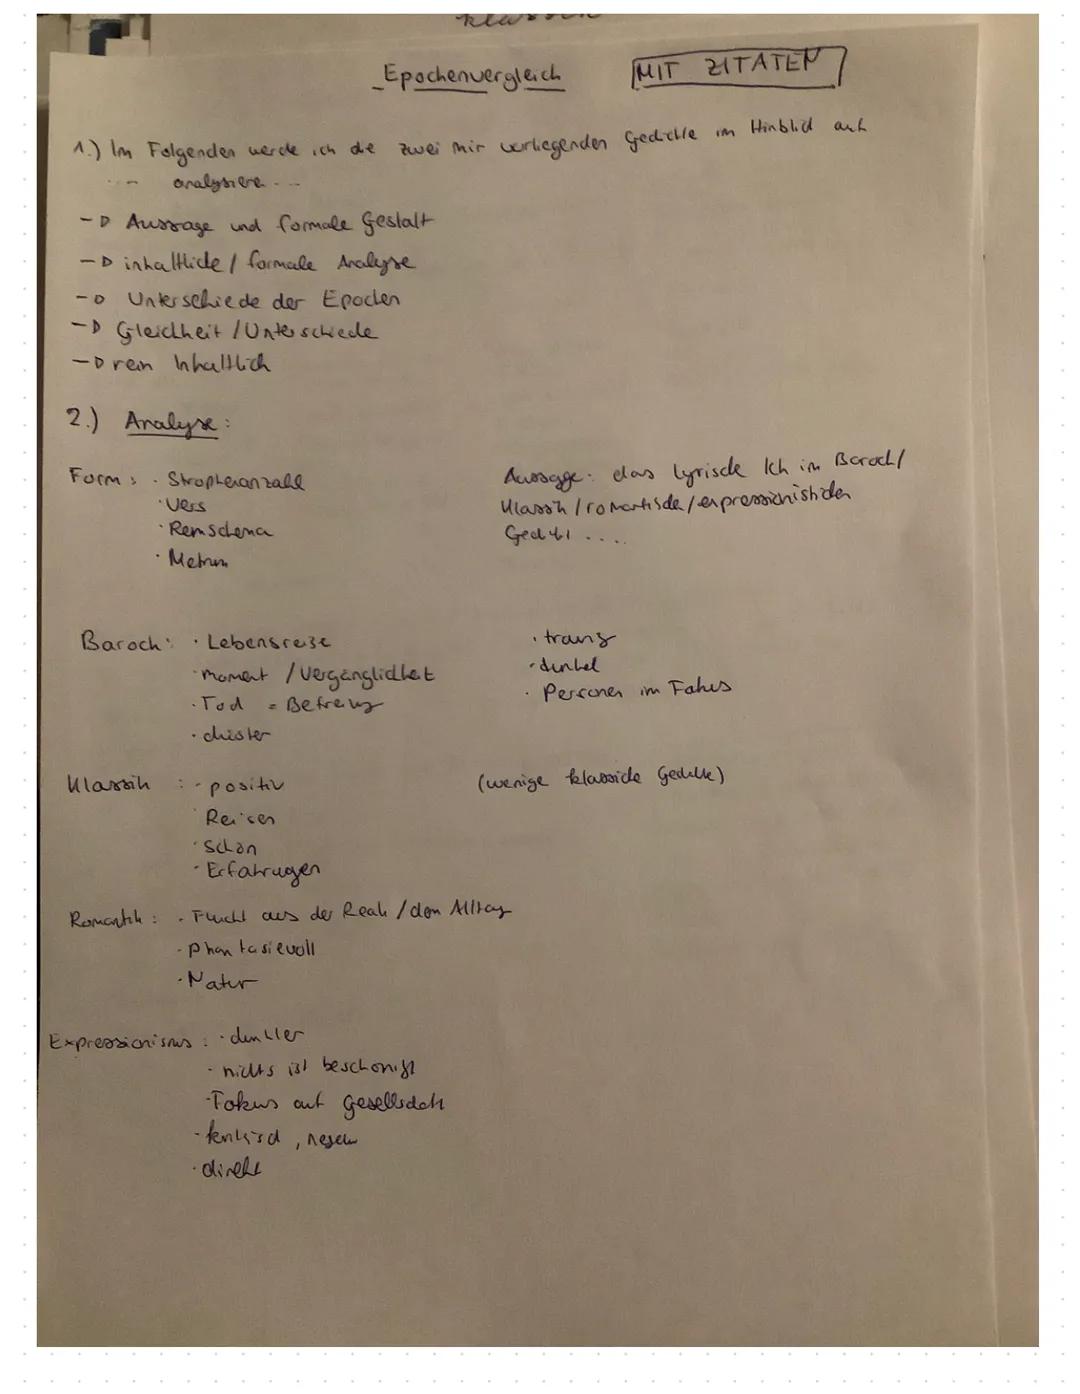 klassik
Epochenvergleich MIT ZITATEN
1.) Im Folgenden werde ich die zwei mir vorliegenden Gedichte im Hinblick auf
... analysiere ...
-> Aussage und formale Gestalt
-> inhaltliche / formale Analyse
-> Unterschiede der Epochen
-> Gleichheit / Unterschiede
-> rein Inhaltlich
2.) Analyse:
Form: · Strophenanzahl
· Vers
· Reimschema
· Metrum
Aussage: das lyrische Ich im Barock/
Klassik / romantische / expressionistischen
Gedicht ....
Barock: · Lebensreise
· moment / Vergänglichkeit
· Tod = Befreiung
· düster
· traurig
· dunkel
· Personen im Fokus
Klassik : · positiv (wenige klassische Gedichte)
· Reisen
· schön
· Erfahrugen
Romantik : · Flucht aus der Reali / dem Alltag
· phantasievoll
· Natur
Expressionismus : · dunkler
· nichts ist beschönigt
· Fokus auf Gesellschaft
· kritisch,
· direkt